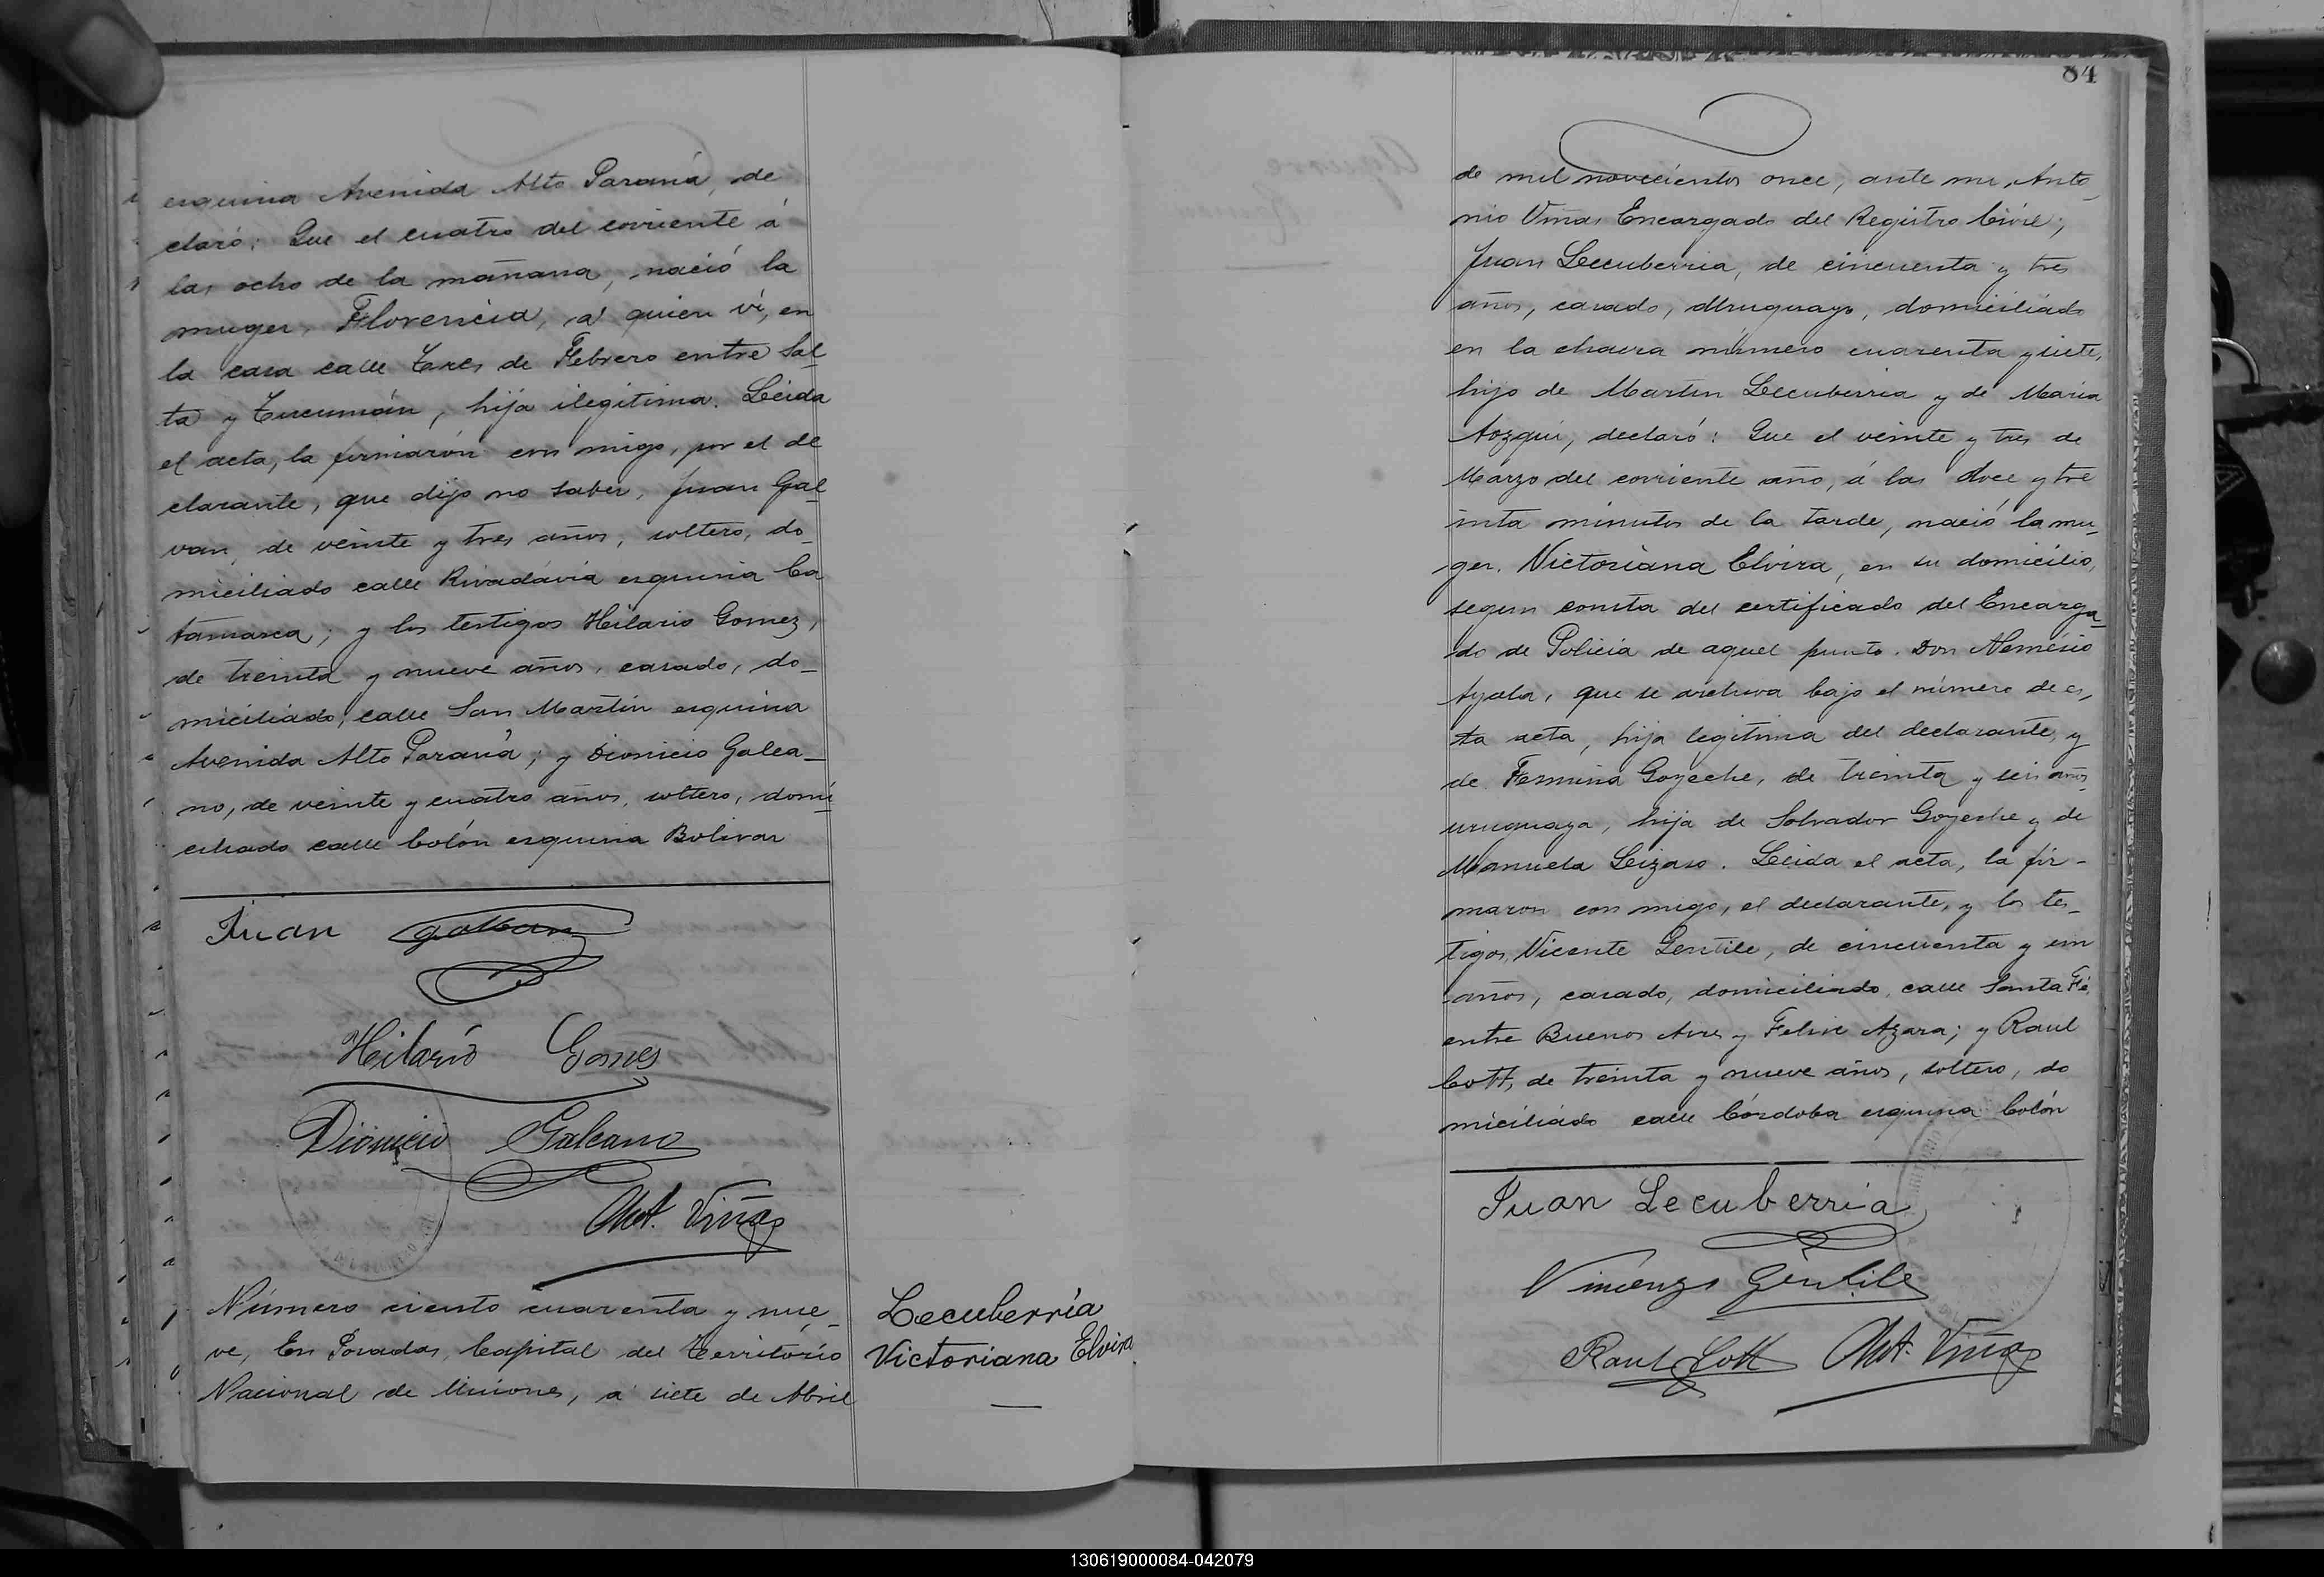 esquina Avenida Alto Paraná, de
claró: Que el cuatro del corriente á
las ocho de la mañana, nació la
muger, Florencia, á quien ví, en
la casa calle Tres de Febrero entre Sal
ta y Tucumán, hija ilegitima. Leida
el acta, la firmarón con migo, por el de
clarante, que dijo no saber, Juan Gal
van, de veinte y tres años, soltero, do_
miciliado calle Rivadávia esquina Ca
tamarca; y los testigos Hilario Gomez,
de treinta y nueve años, casado, do_
miciliado, calle San Martin esquina
Avenida Alto Paraná; y Dionicio Galea_
no, de veinte y cuatro años, soltero, domi
ciliado calle Colón esquina Bolivar
Juan Galban
Hilario Gomes
Dionicio Galeano
Ant. Viñas
Número ciento cuarenta y nue_
ve, En Posadas, Capital del Territorio
Nacional de Misiones, á siete de Abril
Lecuberria
Victoriana Elvira
84
de mil novecientos once, ante mi, Anto_
nio Viñas Encargado del Registro Civil;
Juan Lecuberria, de cincuenta y tres
años, casado, Uruguayo, domiciliado
en la chacra número cuarenta y siete,
hijo de Martin Lecuberria y de Maria
Aozqui, declaró: Que el veinte y tres de
Marzo del corriente año, á las doce y tre
inta minutos de la tarde, nació la mu_
ger, Victoriana Elvira, en su domicilio,
segun consta del certificado del Encarga_
do de Policia de aquel punto. Don Nemésio
Ayala, que se archiva bajo el número de es_
ta acta, hija legitima del declarante, y
de Fermina Goyeche, de treinta y seis años,
uruguaya, hija de Salvador Goyeche y de
Manuela Leizaso. Leida el acta, la fir-
maron con migo, el declarante, y los tes_
tigos, Vicente Gentile, de cincuenta y un
años, casado, domiciliado, calle Santa Fé,
entre Buenos Aires y Felix Azara; y Raul
Cott, de treinta y nueve años, soltero, do
miciliado calle Córdoba esquina Colón
Juan Lecuberria
Vincenzo Gentile
Raul Cott Ant. Viñas
130619000084-042079